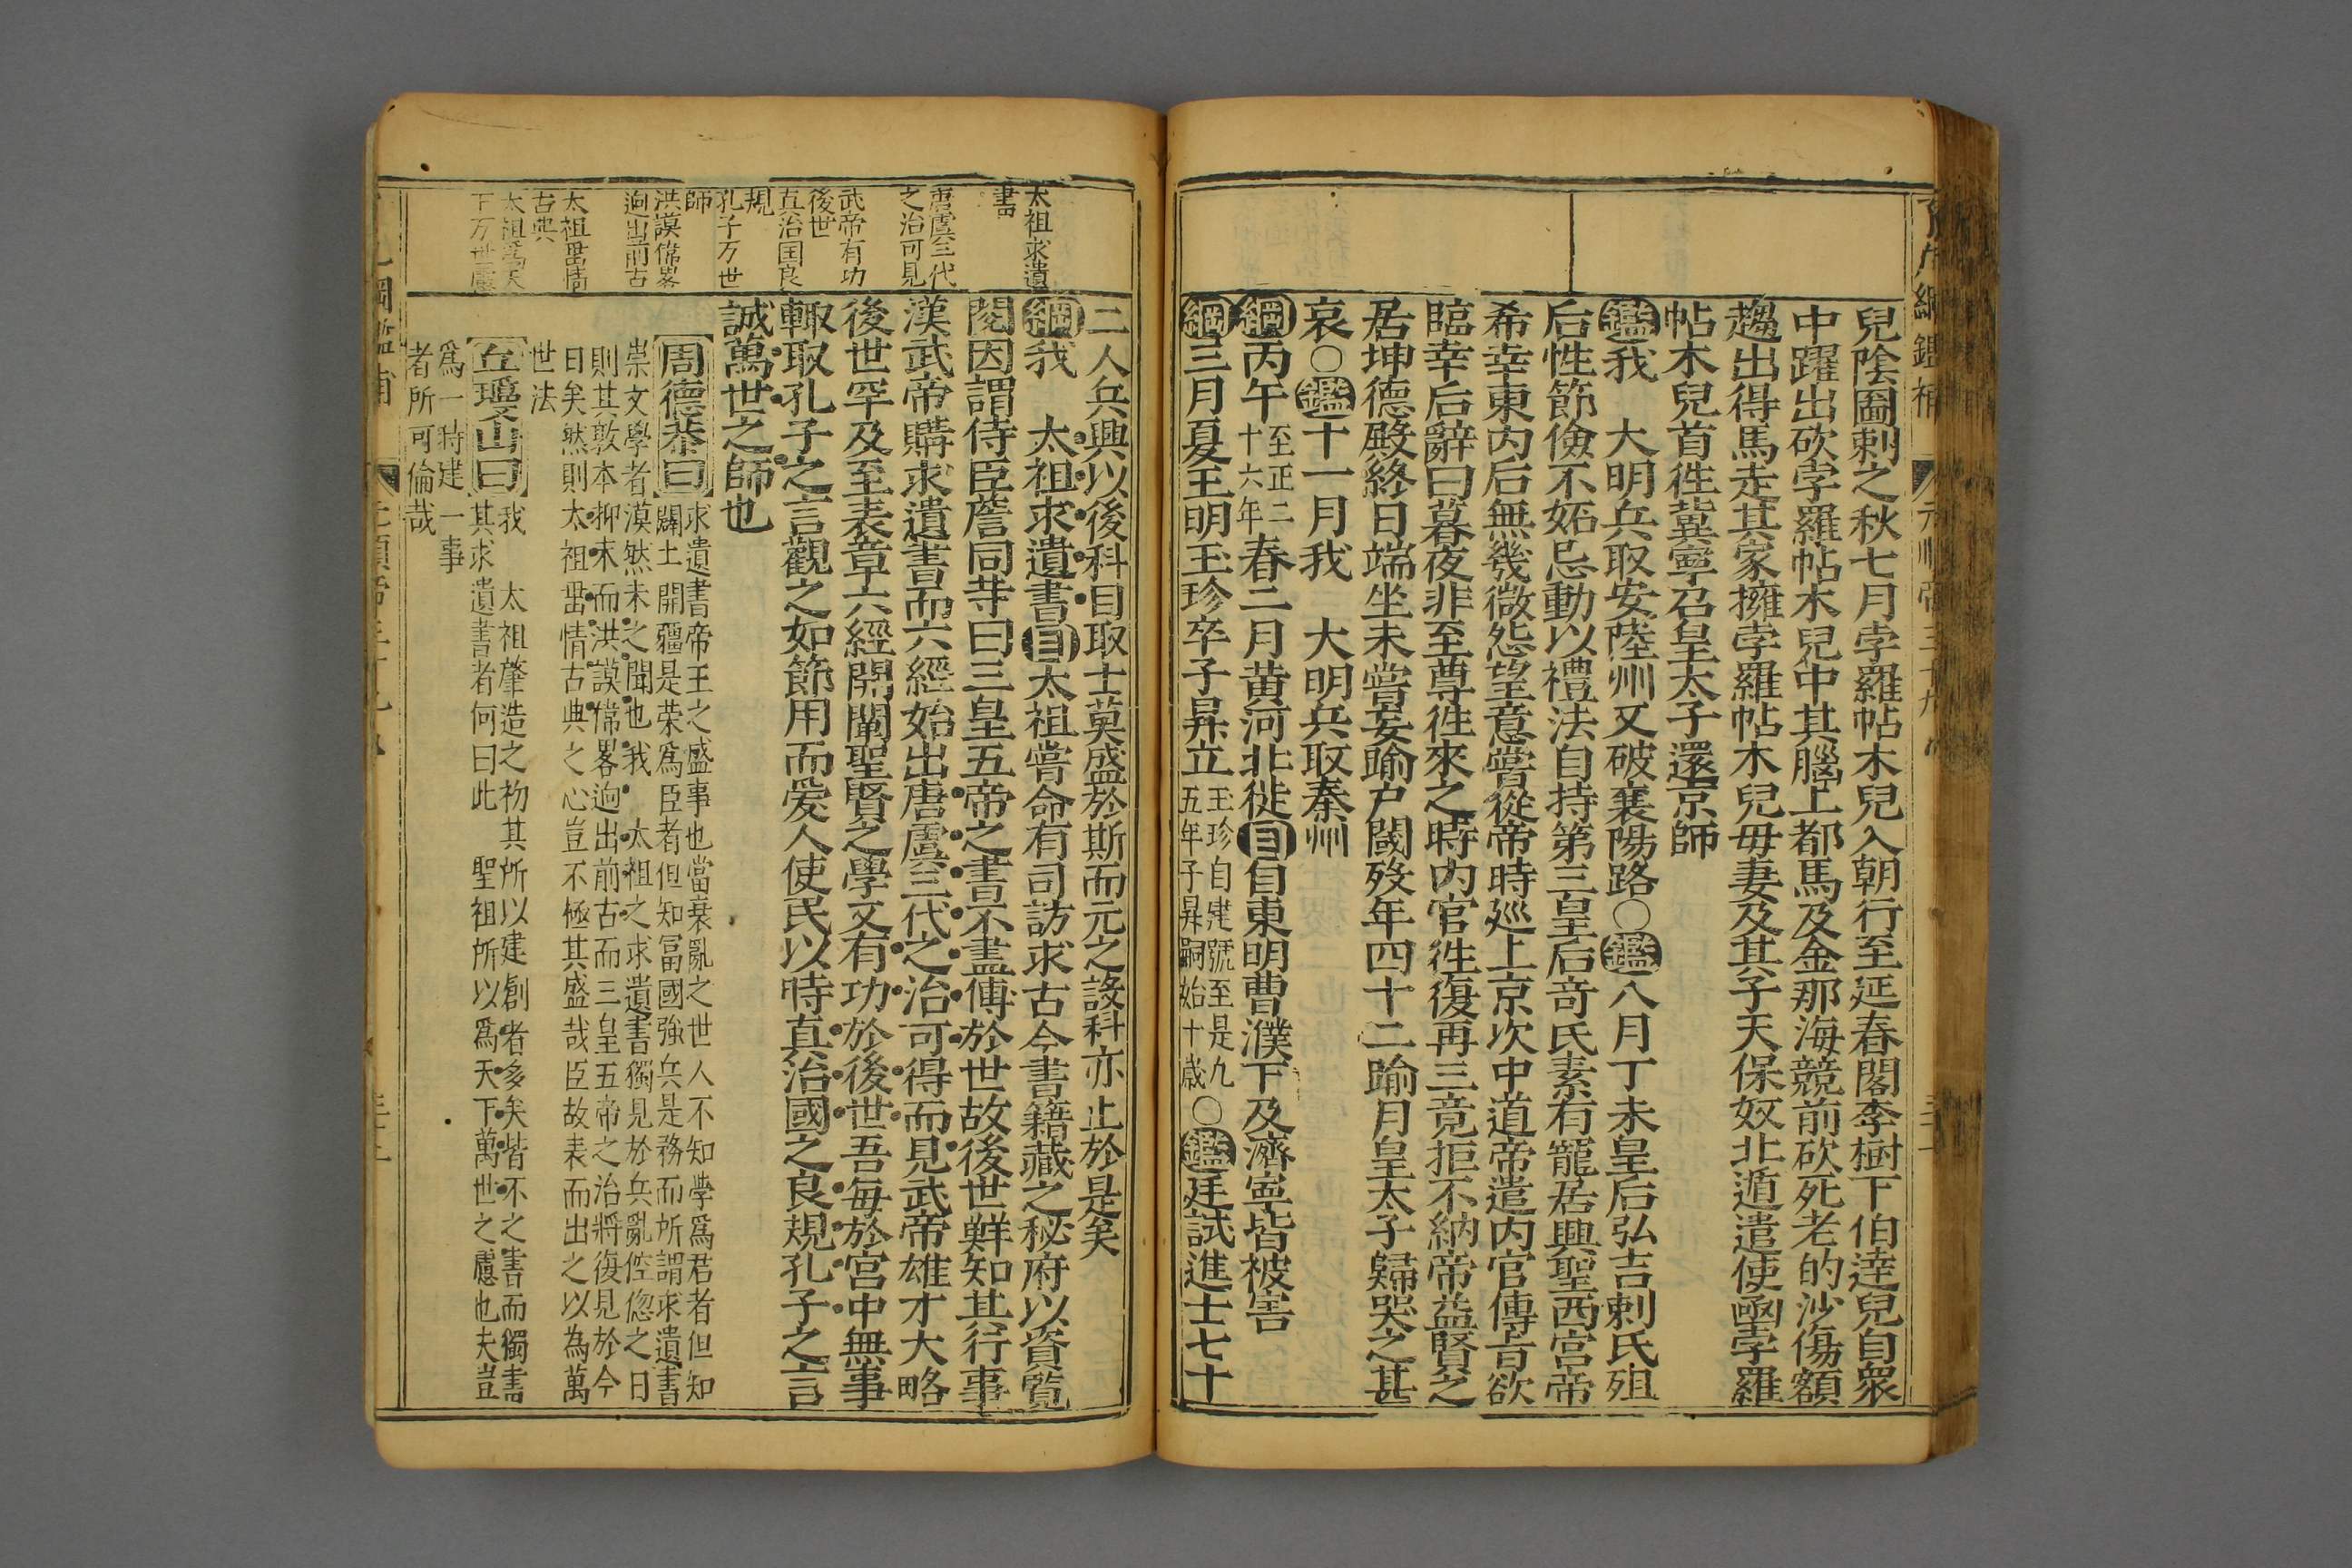 兒陰圖剌之秋七月孛羅帖木兒入朝行至延春閣李樹下伯達兒自衆
中躍出砍孛羅帖木兒中其腦上都馬及金那海競前砍死老的沙傷額
趨出得馬走其家擁孛羅帖木兒母妻及其子天保奴北遁遣使函孛羅
帖木兒首徃冀寧召皇太子還京師
鑑我 大明兵取安陸州又破襄陽路○鑑八月丁未皇后弘吉剌氏殂
后性節儉不妬忌動以禮法自持第三皇后竒氏素有寵居興聖西宮帝
希幸東内后無幾微怨望意嘗從帝時廵上京次中道帝遣内官傳旨欲
臨幸后辭曰暮夜非至尊徃來之時内官徃復再三竟拒不納帝益賢之
居坤德殿終日端坐未嘗妄踰户閾殁年四十二踰月皇太子歸哭之甚
哀○鑑十一月我 大明兵取秦州
綱丙午至正二十六年春二月黄河北徙目自東明曹濮下及濟寧皆被害
綱三月夏主明玉珍卒子昇立玉珍自建號至是九五年子昇嗣始十歲○鑑廷試進士七十
太祖求遺
書
唐虞三代
之治可見
武帝有功
後世
真治囯良
規
孔子万世
師
洪謨偉畧
逈出前古
太祖畱情
古典
太祖爲天
下万世慮
二人兵興以後科目取士莫盛於斯而元之設科亦止於是矣
綱我 太祖求遺書目太祖嘗命有司訪求古今書籍藏之秘府以資覽
閱因謂侍臣詹同等曰三皇五帝之書不盡傳於世故後世鮮知其行事
漢武帝購求遺書而六經始出唐虞三代之治可得而見武帝雄才大略
後世罕及至表章六經開闡聖賢之學又有功於後世吾每於宮中無事
輙取孔子之言觀之如節用而愛人使民以時真治國之良規孔子之言
誠萬世之師也
周德恭曰求遺書帝王之盛事也當衰亂之世人不知學爲君者但知
闢土開疆是荣爲臣者但知冨國強兵是務而所謂求遺書
崇文學者漠然未之聞也我 太祖之求遺書獨見於兵亂倥傯之日
則其敦本抑末而洪謨偉畧逈出前古而三皇五帝之治將復見於今
日矣然則太祖畱情古典之心豈不極其盛哉臣故表而出之以為萬
世法
丘瓊山曰我 太祖肇造之初其所以建創者多矣皆不之書而獨書
其求遺書者何曰此 聖祖所以爲天下萬世之慮也夫豈
爲一時建一事
者所可倫哉